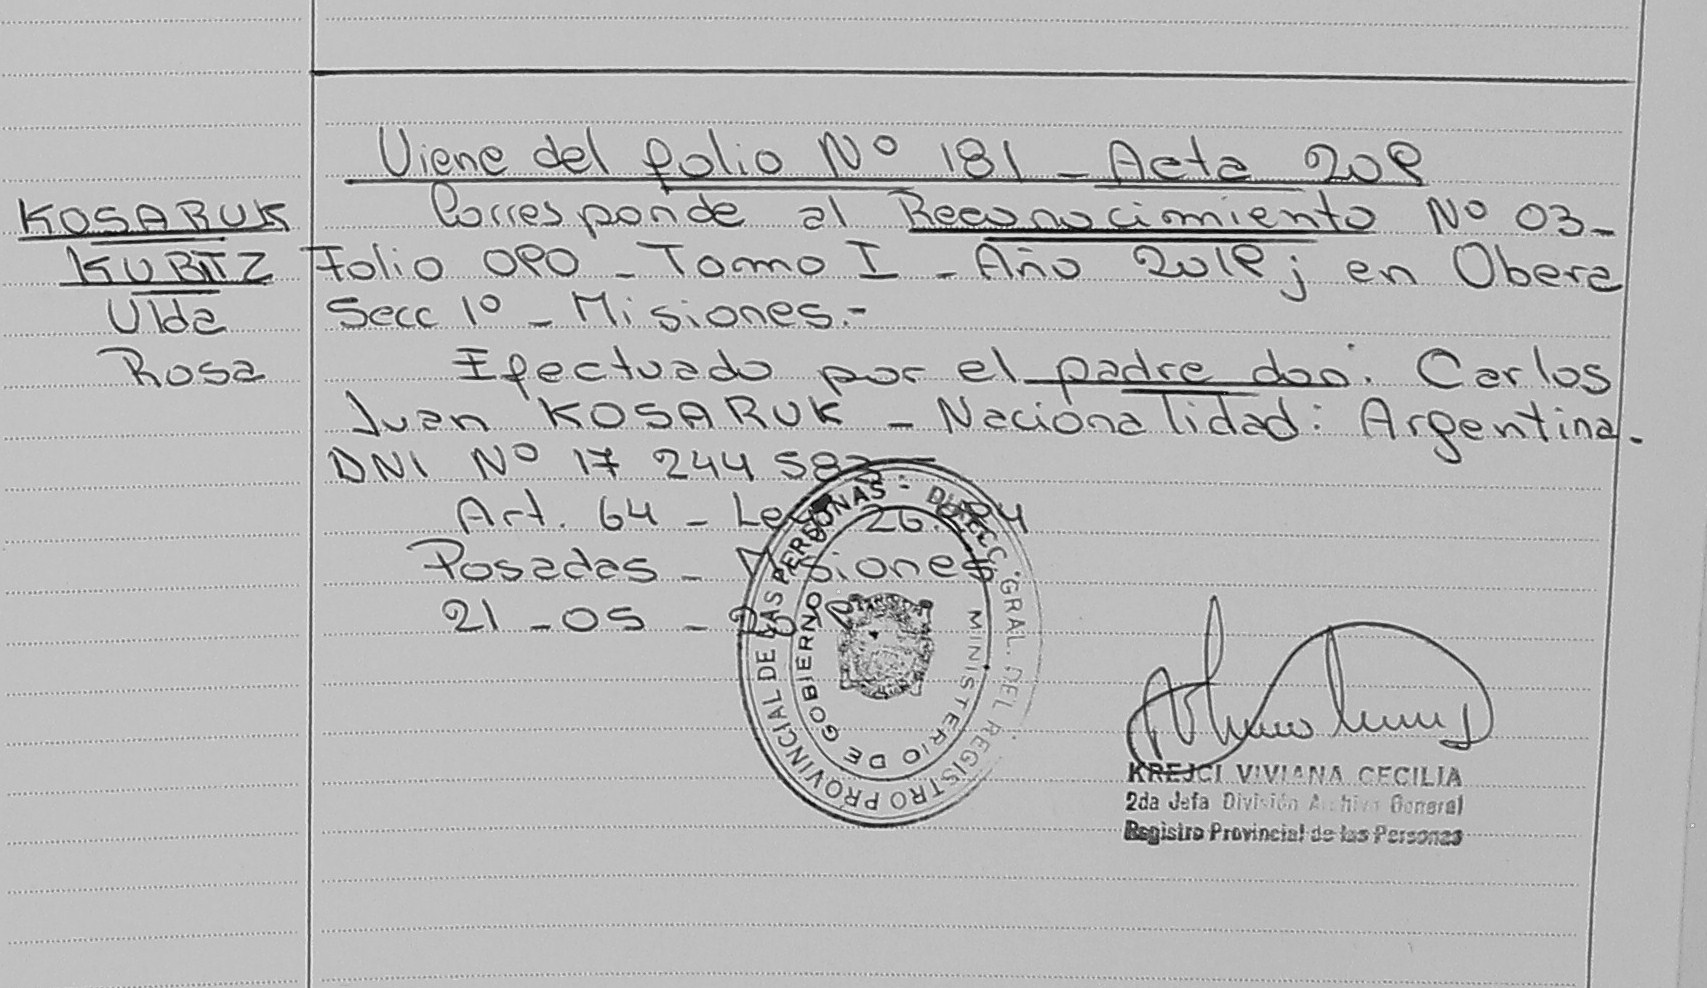 Viene del folio Nº 181 - Acta 209
KOSARUK
KUBITZ
Ulda
Rosa
Corresponde al Reconocimiento Nº 03-
Folio 090 - Tomo I - Año 2019; en Obera
Secc 1º - Misiones.-
Efectuado por el padre don: Carlos
Juan KOSARUK - Nacionalidad: Argentina.
DNI Nº 17 244 583-
Art. 64 - Ley 26.994
Posadas - Misiones
21 - 05 - 2019
DIRECC. GRAL. DEL REGISTRO PROVINCIAL DE LAS PERSONAS -
MINISTERIO DE GOBIERNO
KREJCI VIVIANA CECILIA
2da Jefa División Archivo General
Registro Provincial de las Personas